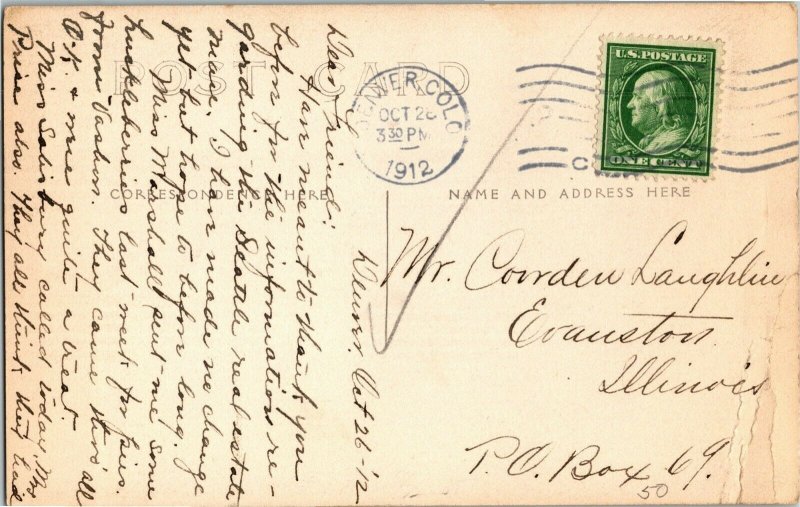 POST CARD
CORRESPONDENCE HERE
NAME AND ADDRESS HERE
DENVER, COLO
OCT 26
3 30 PM
1912
U.S. POSTAGE
ONE CENT
Denver. Oct 26-'12
Dear Friend:
I have meant to thank you
before for the information re-
garding the Seattle real estate
made. I have made no change
yet but hope to before long.
Miss Marshall sent me some
huckleberries last week for pies.
from Vashon. They came thro' all
O.K. & were quite a treat.
Miss Salisbury called today, Mrs
Price also. They all think they had
Mr. Cowden Laughlin
Evanston
Illinois
P.O. Box 69.
50